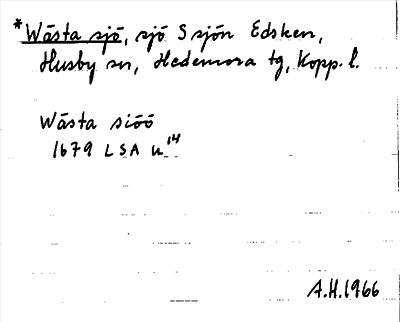 *Wästa sjö, sjö S sjön Edsken,
Husby sn, Hedemora tg, Kopp. l.
Wästa siöö
1679 LSA u 14
A.H. 1966